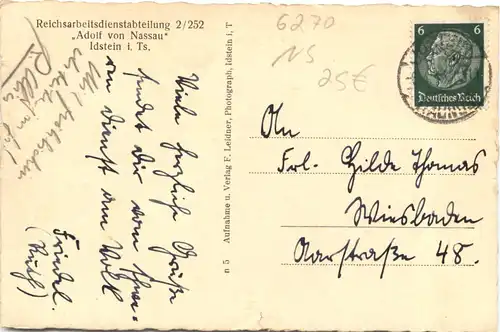 Reichsarbeitsdienstabteilung 2/252
„Adolf von Nassau"
Idstein i. Ts.
6270
NS
25€
6 6
Deutsches Reich
Viele herzliche Grüße
sendet dir vom schwe-
ren Dienst am Volk
Friedel.
n 5 Aufnahme u. Verlag F. Leidner, Photograph, Idstein i. T
An
Frl. Hilde Thomas
Wiesbaden
Aarstraße 48.